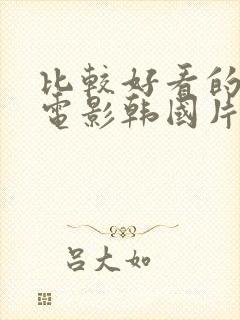 比較好看的
電影韩國片
吕大如